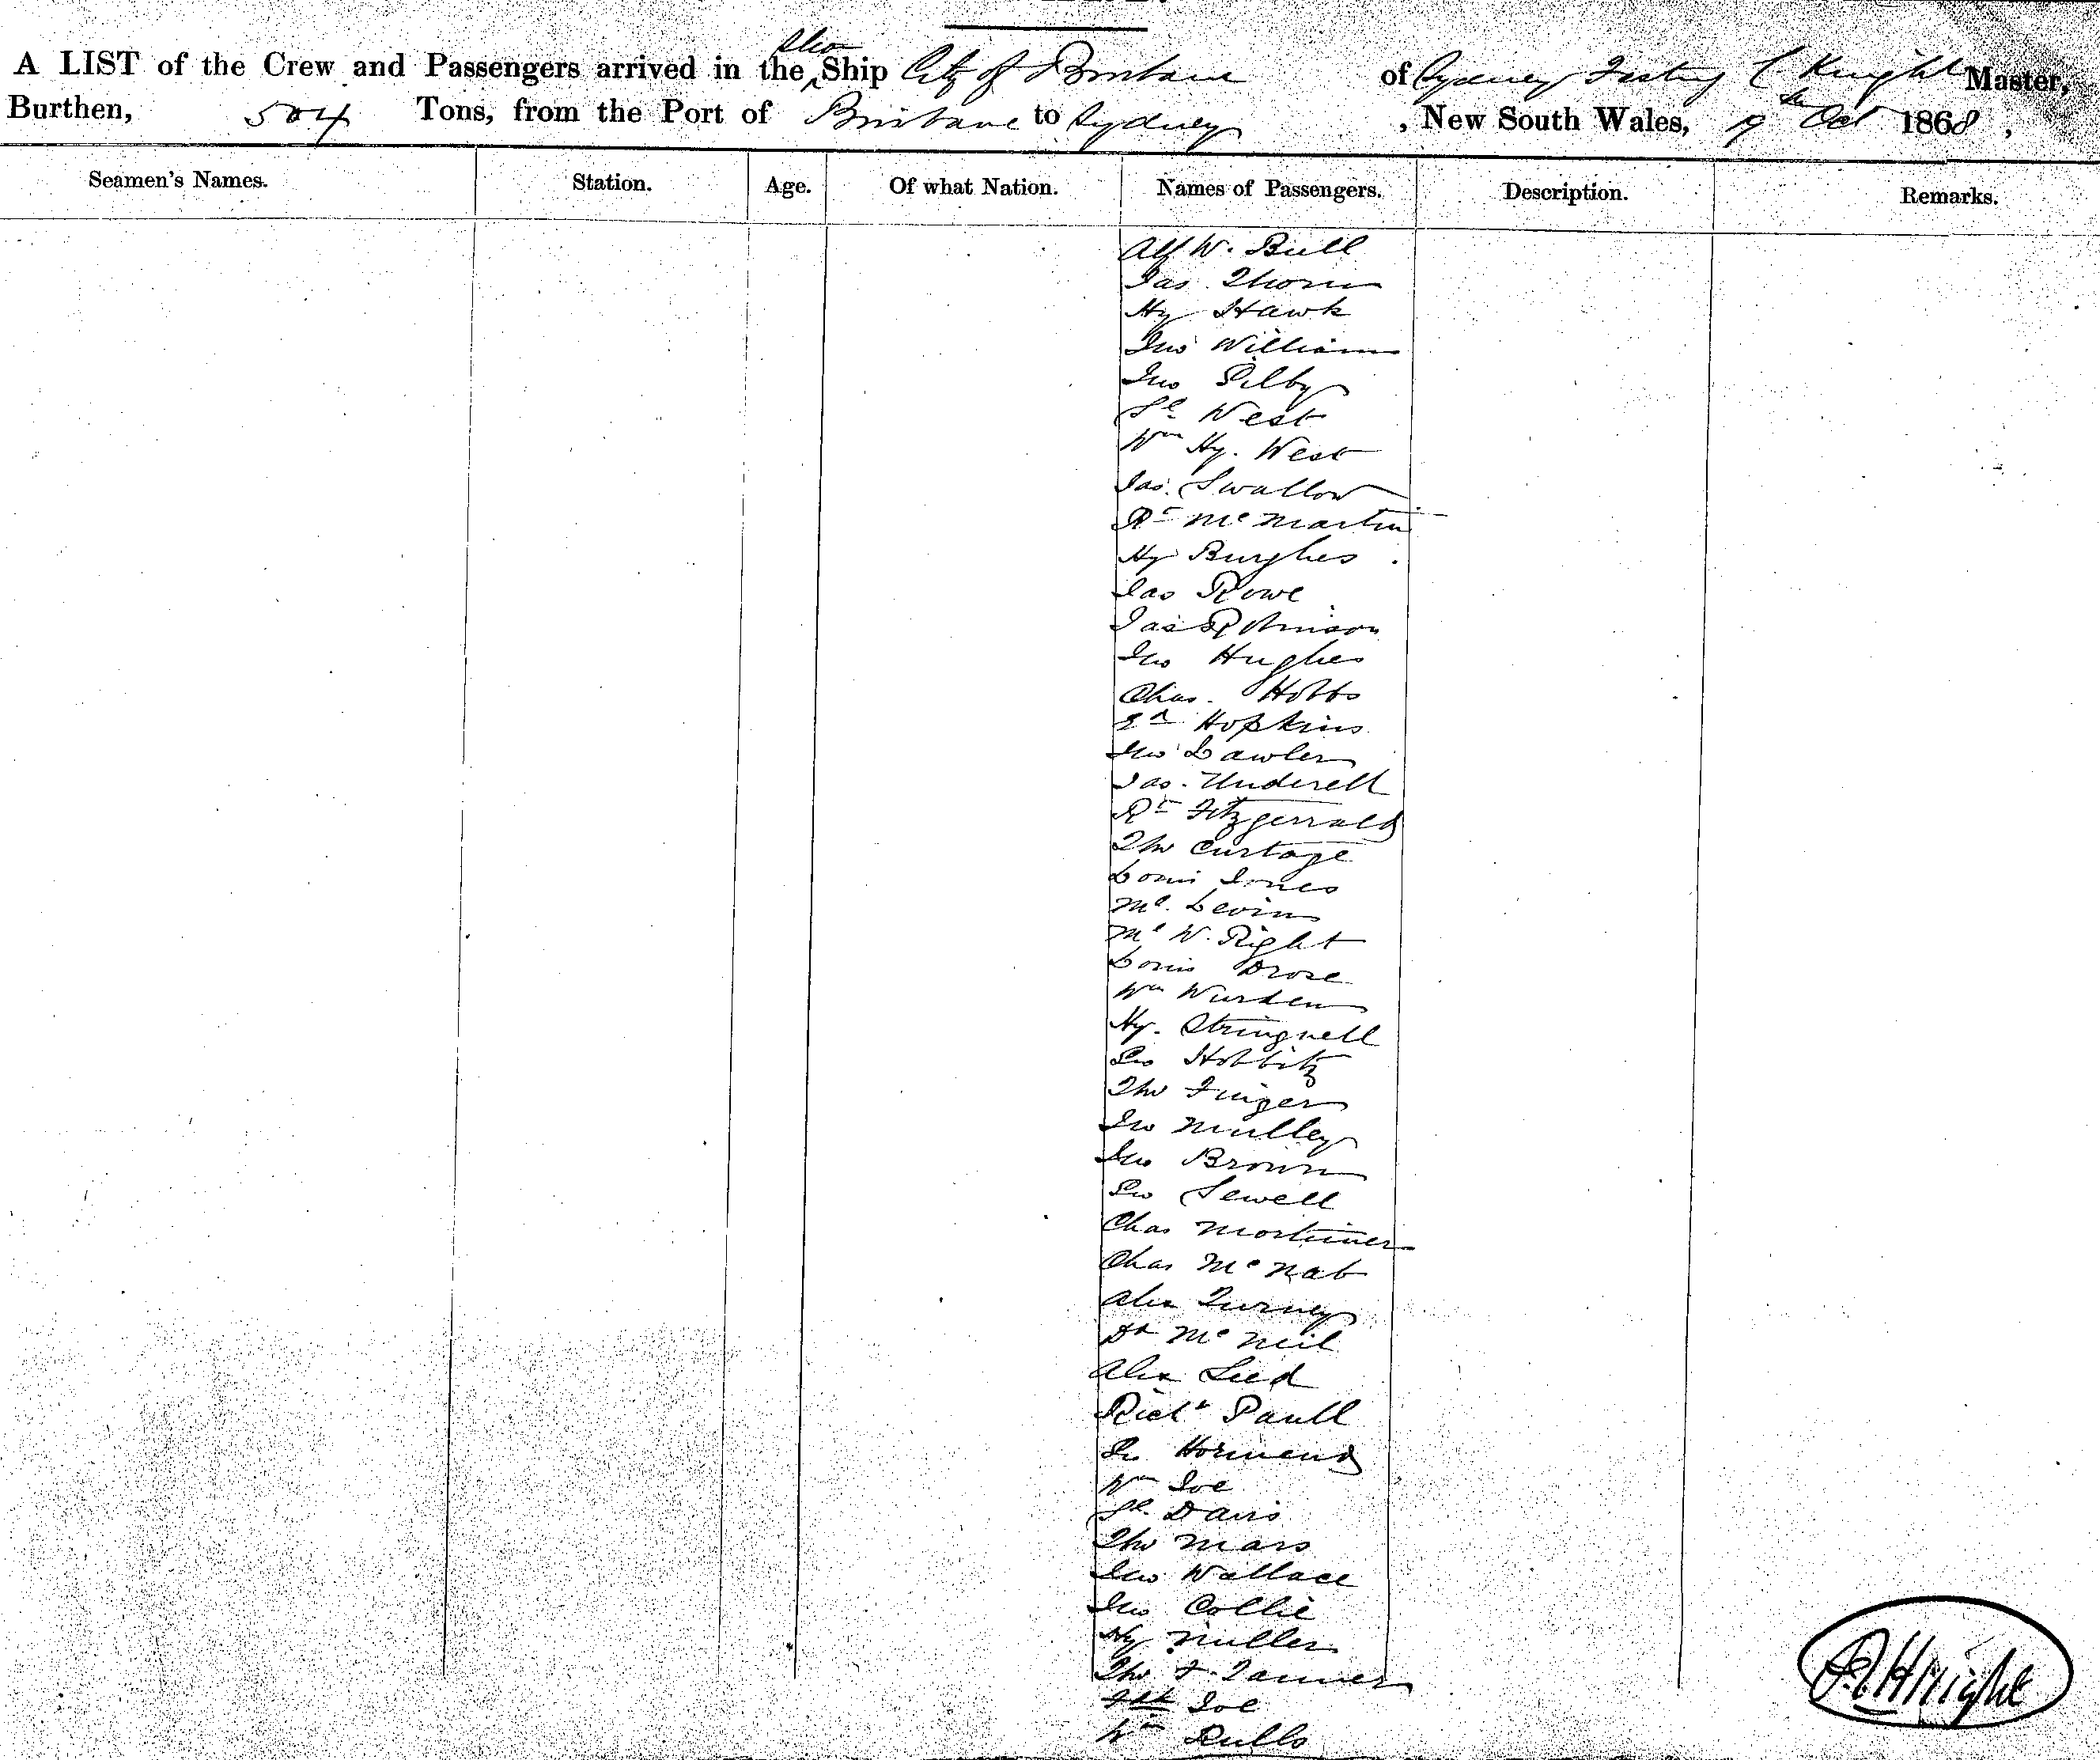 A LIST of the Crew and Passengers arrived in the Ship City of Brisbane of Sydney Knight Master,
Burthen, 504 Tons, from the Port of Brisbane to Sydney, New South Wales, 9th Oct 1868,
Seamen's Names. Station. Age. Of what Nation. Names of Passengers. Description. Remarks.
Alf W. Bull
Jas. Thorn
Hy Hawk
Jno Williams
Jno Silby
Sl West
Wm Hy. West
Jas. Swallow
Rt McMartin
Hy Burghes
Jas Rowe
Jas Robinson
Jno Hughes
Chas. Hobbs
Ed Hopkins
Jno Lawler
Jas. Underell
Rt Fitzgerrald
Tho Curtage
Louis Jones
Ml. Levin
Ml W. Right
Louis Drose
Wm Wurden
Hy. Stringnell
Geo Hobbitz
Tho Finger
Jno Mulley
Jno Brown
Geo Sewell
Chas Mortimer
Chas McNab
Alex Turney
Dd McNeil
Alex Lied
Richd Paull
Hormend
Wm Joe
Sl. Davis
Tho Mars
Jno Wallace
Jno Collie
Hy Muller
Tho F. Tanner
Joe
Wm Rulls
Knight